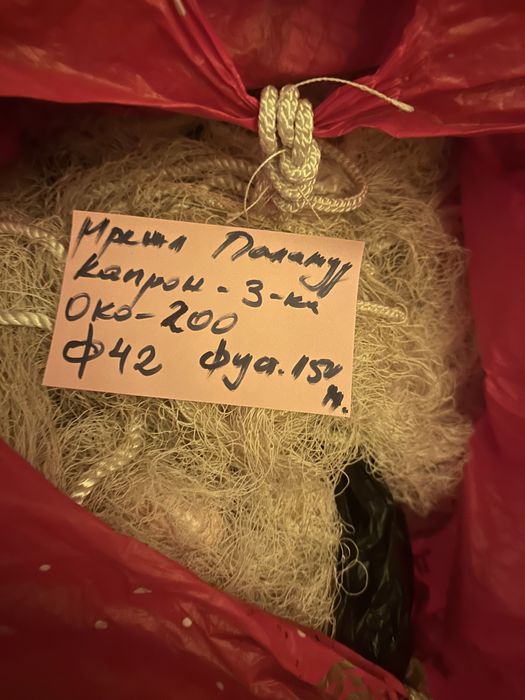 Мрежа Паламуд
Капрон - 3-ка
Око - 200
Ф42 фуд. 150
м.